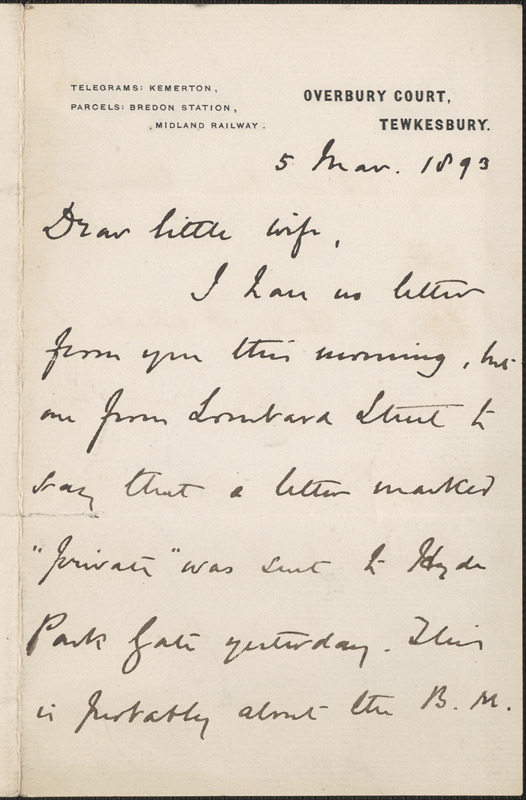 TELEGRAMS: KEMERTON,
PARCELS: BREDON STATION,
MIDLAND RAILWAY.
OVERBURY COURT,
TEWKESBURY.
5 Mar. 1893
Dear little wife,
I have no letter
from you this morning, but
one from Lombard Street to
say that a letter marked
"private" was sent to Hyde
Park Gate yesterday. This
is probably about the B. M.